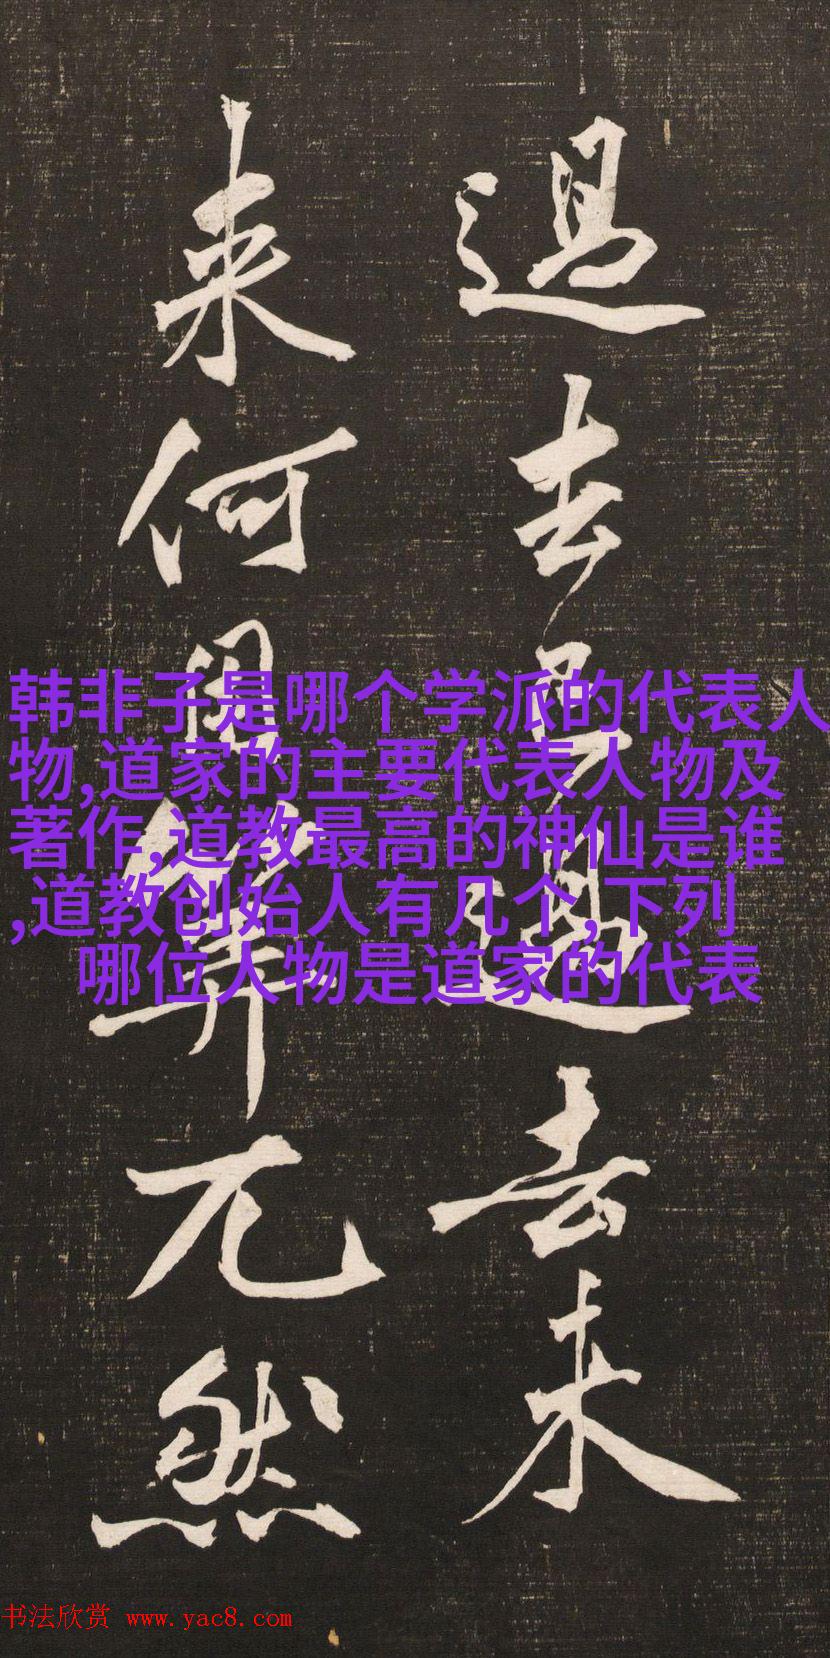 過去過去未
来何算兀然
韩非子是哪个学派的代表人
物,道家的主要代表人物及
著作,道教最高的神仙是谁
,道教创始人有几个,下列
哪位人物是道家的代表
书法欣赏 www.yac8.com